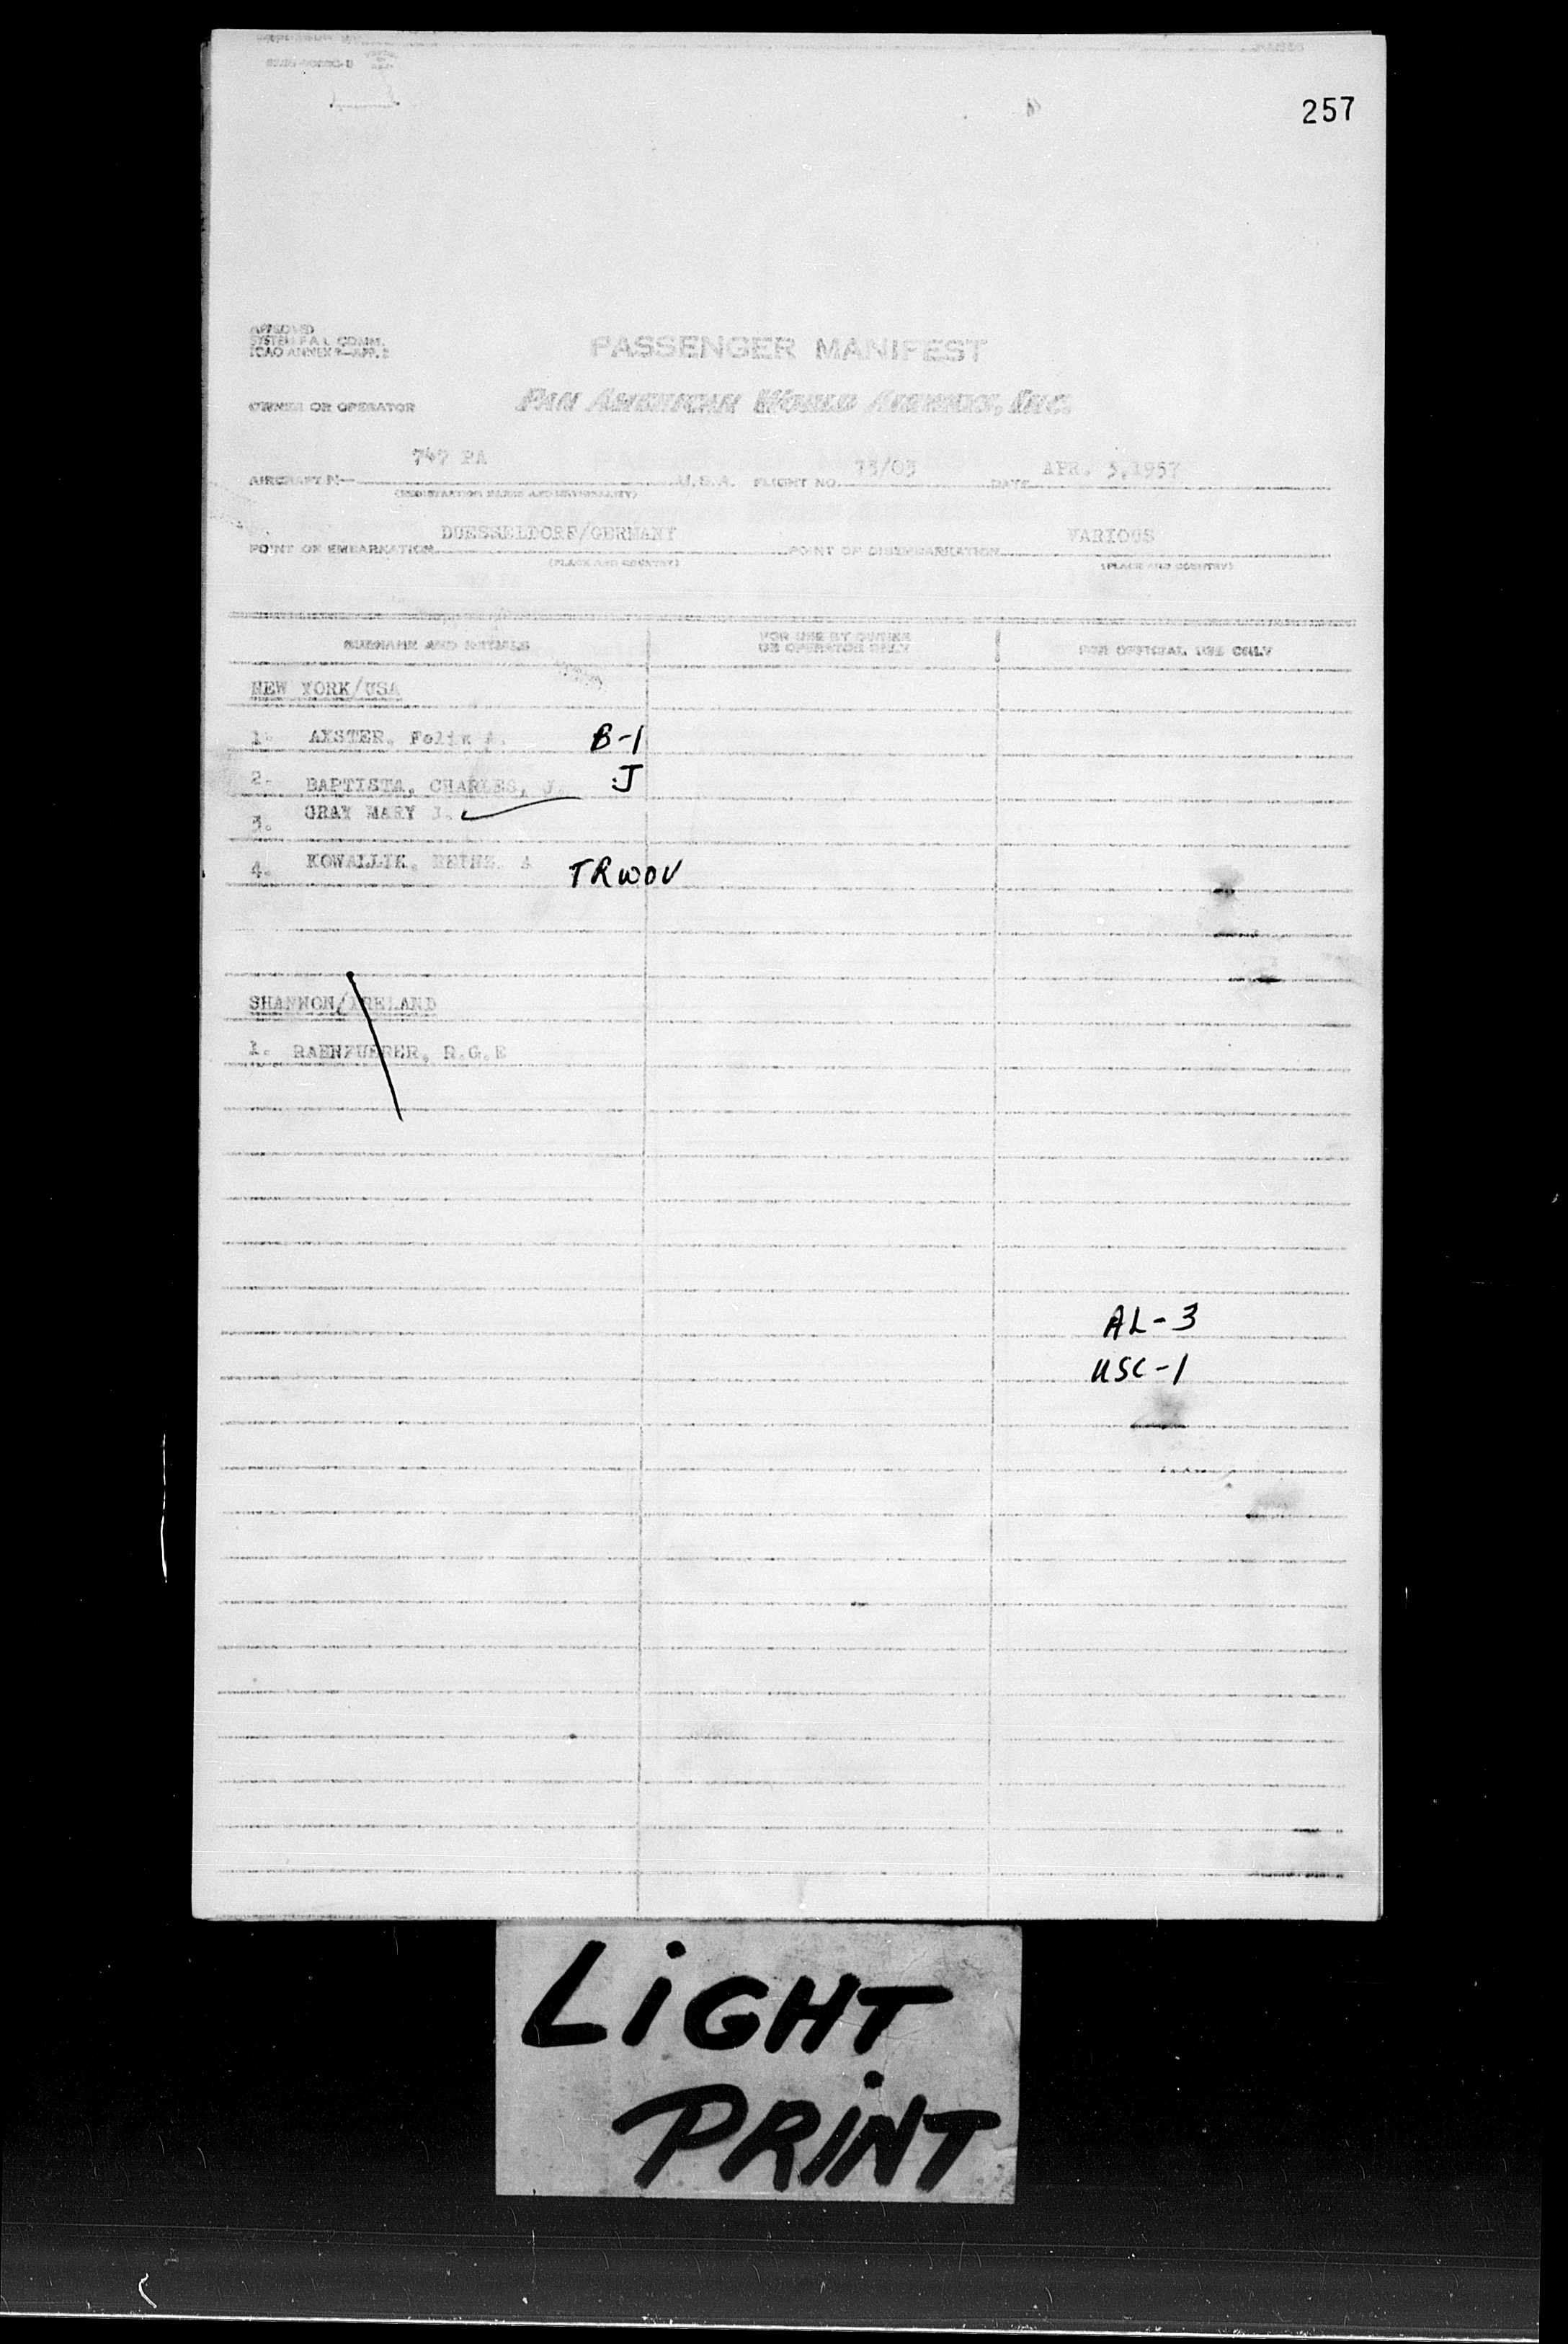 257
APPROVED
SYSTEM F.A.L. COMM.
ICAO ANNEX 9—APP. 2
PASSENGER MANIFEST
OWNER OR OPERATOR
PAN AMERICAN WORLD AIRWAYS, INC.
747 PA
73/03
APR. 3,1957
AIRCRAFT N— U.S.A. FLIGHT NO. DATE
(REGISTRATION MARKS AND NATIONALITY)
DUESSELDORF/GERMANY
VARIOUS
POINT OF EMBARKATION POINT OF DISEMBARKATION
(PLACE AND COUNTRY) (PLACE AND COUNTRY)
SURNAME AND INITIALS
FOR USE BY OWNER
OR OPERATOR ONLY
FOR OFFICIAL USE ONLY
NEW YORK/USA
1. AXSTER, Felix A. B-1
2. BAPTISTA, CHARLES, J. J
3. GRAY MARY J.
4. KOWALLIK, HEINZ A TRWOV
SHANNON/IRELAND
1. RAENFUEHRER, R.G.E
AL-3
USC-1
LiGHT
PRiNT